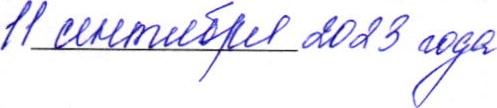 11 сентября 2023 года